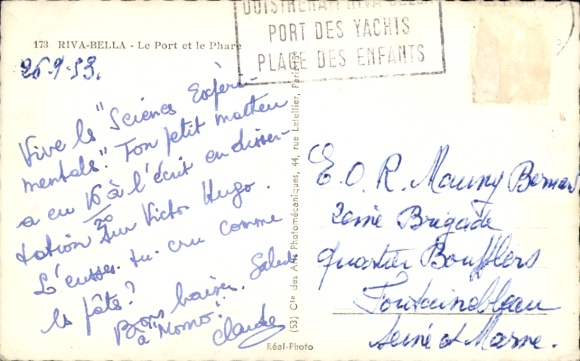 OUISTREHAM RIVA-BELLA
PORT DES YACHTS
PLAGE DES ENFANTS
173 RIVA-BELLA - Le Port et le Phare
26.9.53.
Vive les "Sciences Expéri-
mentales". Ton petit matheu
a eu 16/20 à l'écrit en disser-
tation sur Victor Hugo.
L'eusses-tu cru comme
les pâtés?
Bons baisers. Salut
à "Momo"!
Claude
(63) Cité des Arts Photomécaniques, 44, rue Letellier, Paris
Réal-Photo
E.O.R. Mauny Bernard
2ème Brigade
Quartier Boufflers
Fontainebleau
Seine et Marne.